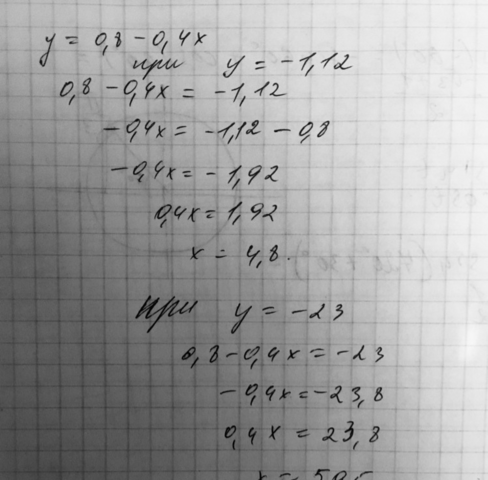 y = 0,8 - 0,4x
при y = -1,12
0,8 - 0,4x = -1,12
-0,4x = -1,12 - 0,8
-0,4x = -1,92
0,4x = 1,92
x = 4,8.
при y = -23
0,8 - 0,4x = -23
-0,4x = -23,8
0,4x = 23,8